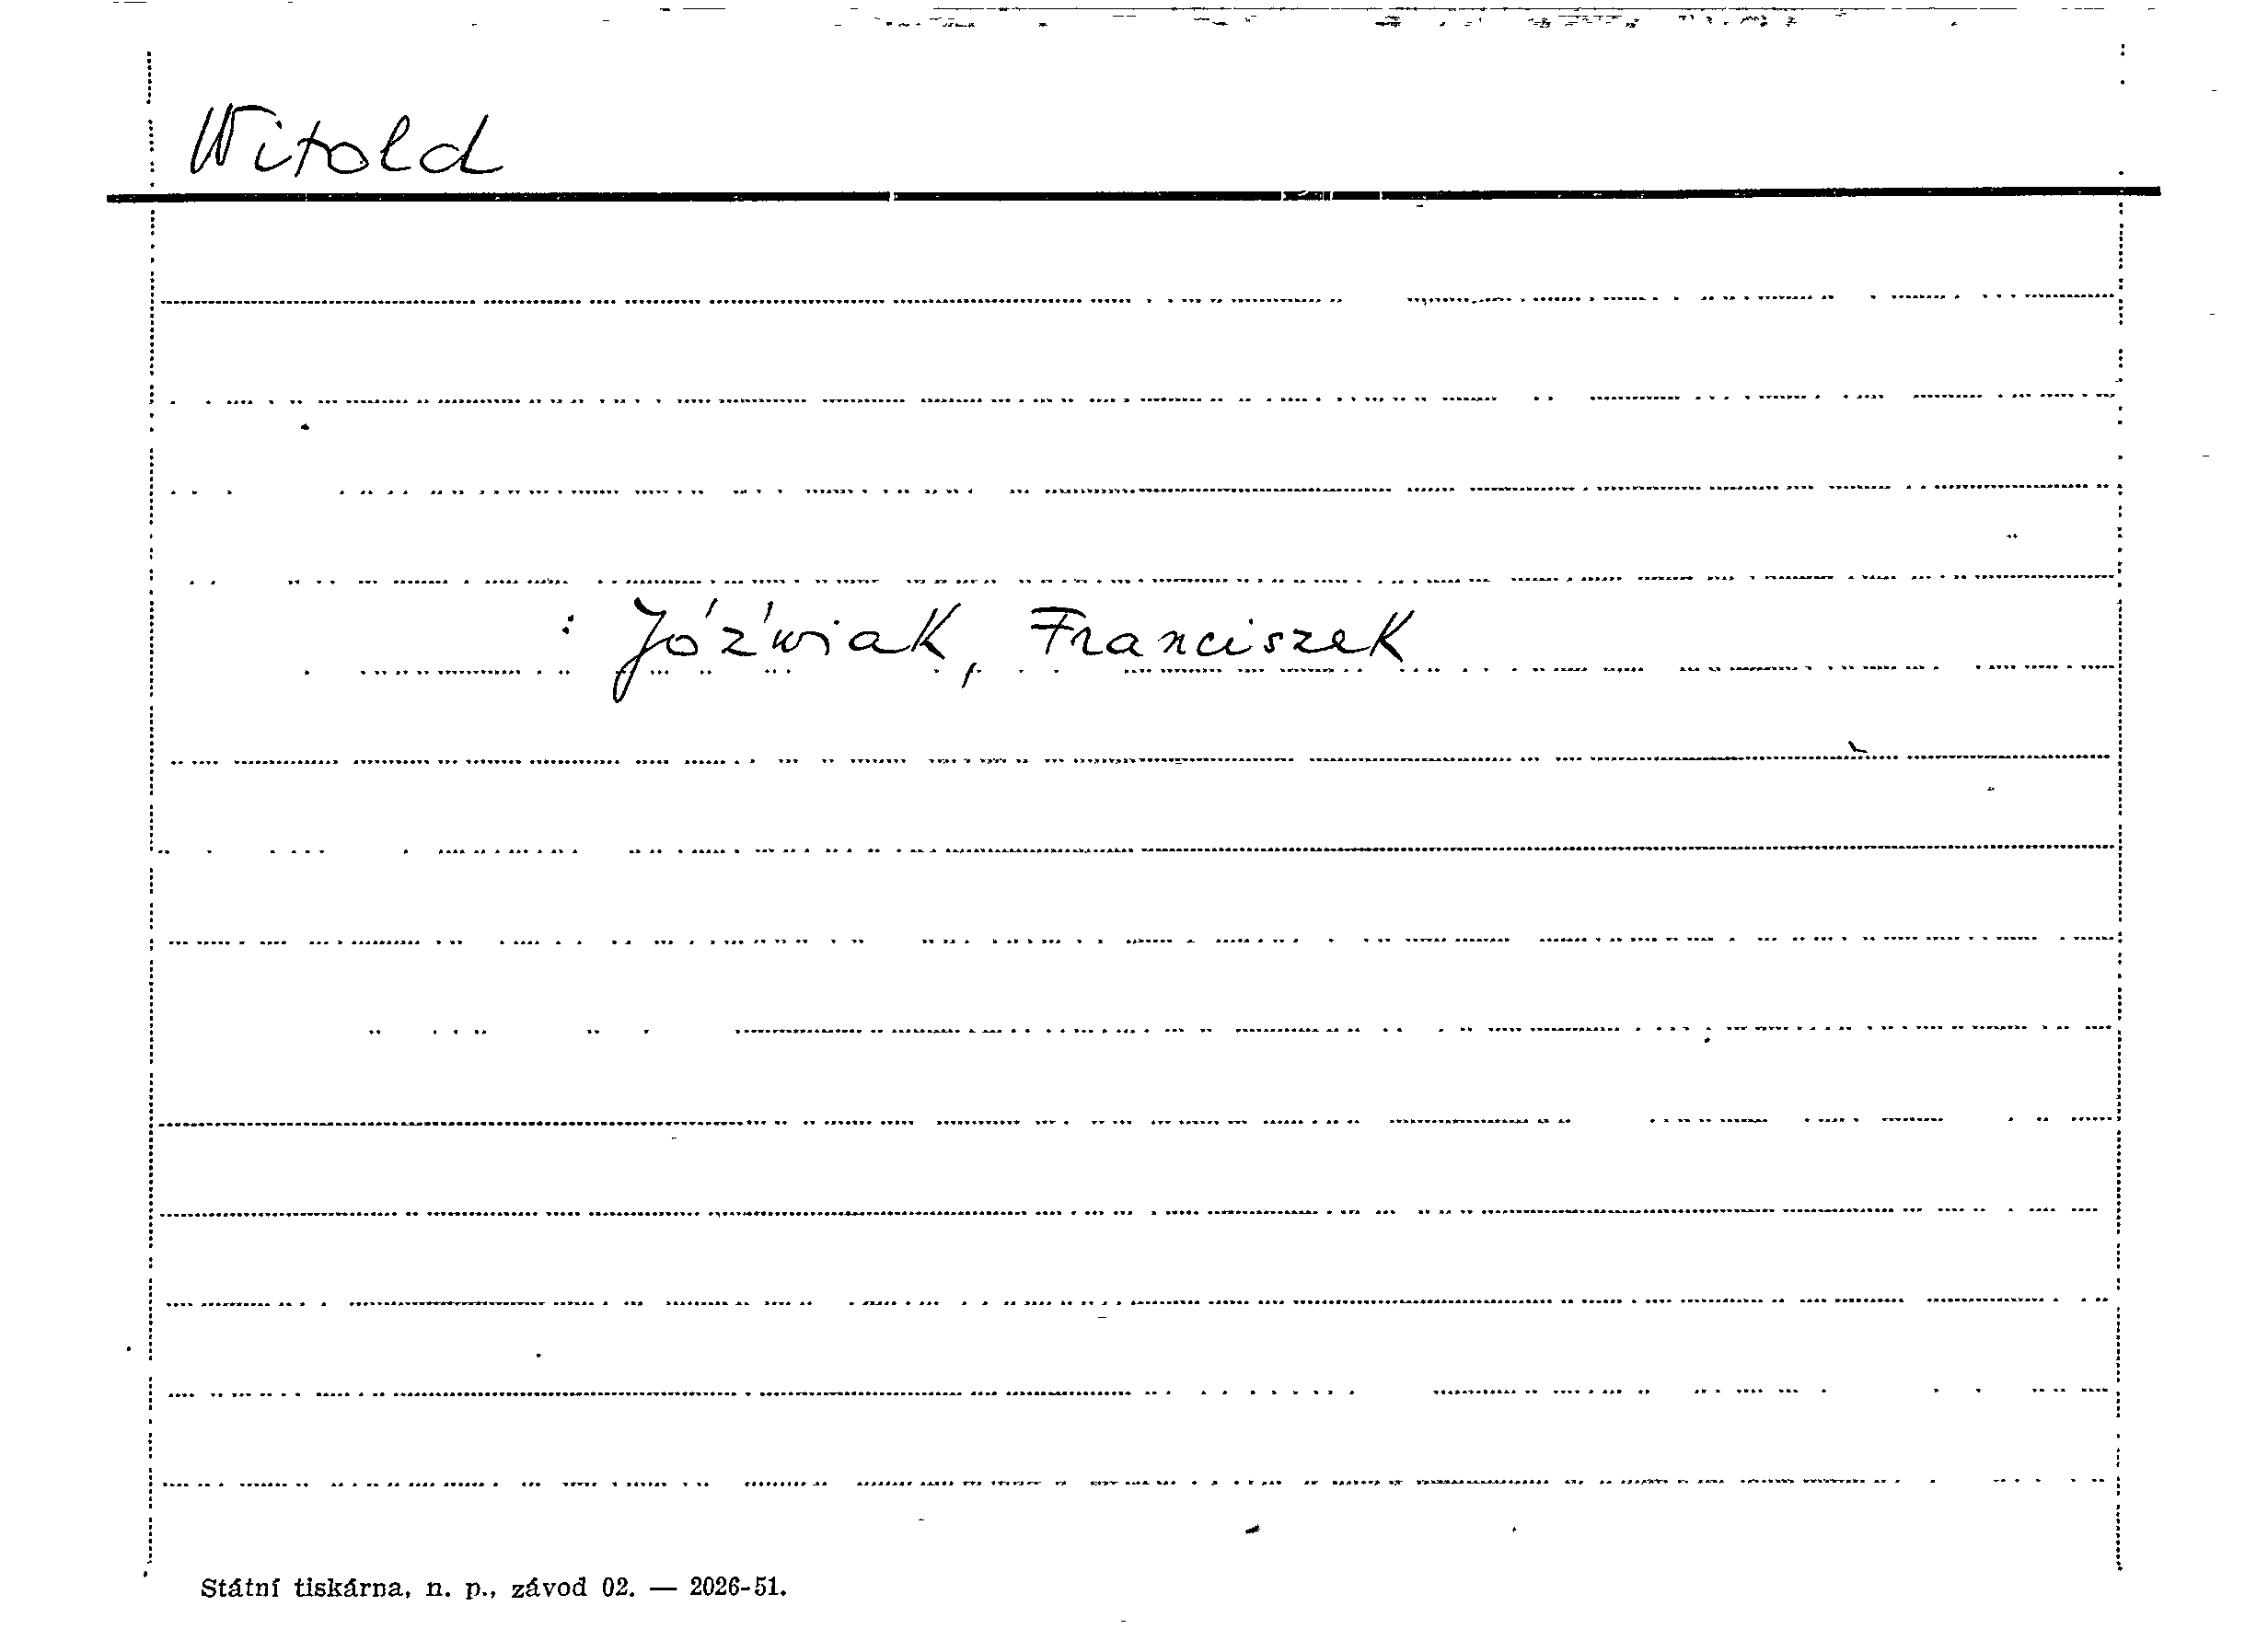 Witold
: Józ'wiak, Franciszek
Státní tiskárna, n. p., závod 02. — 2026-51.